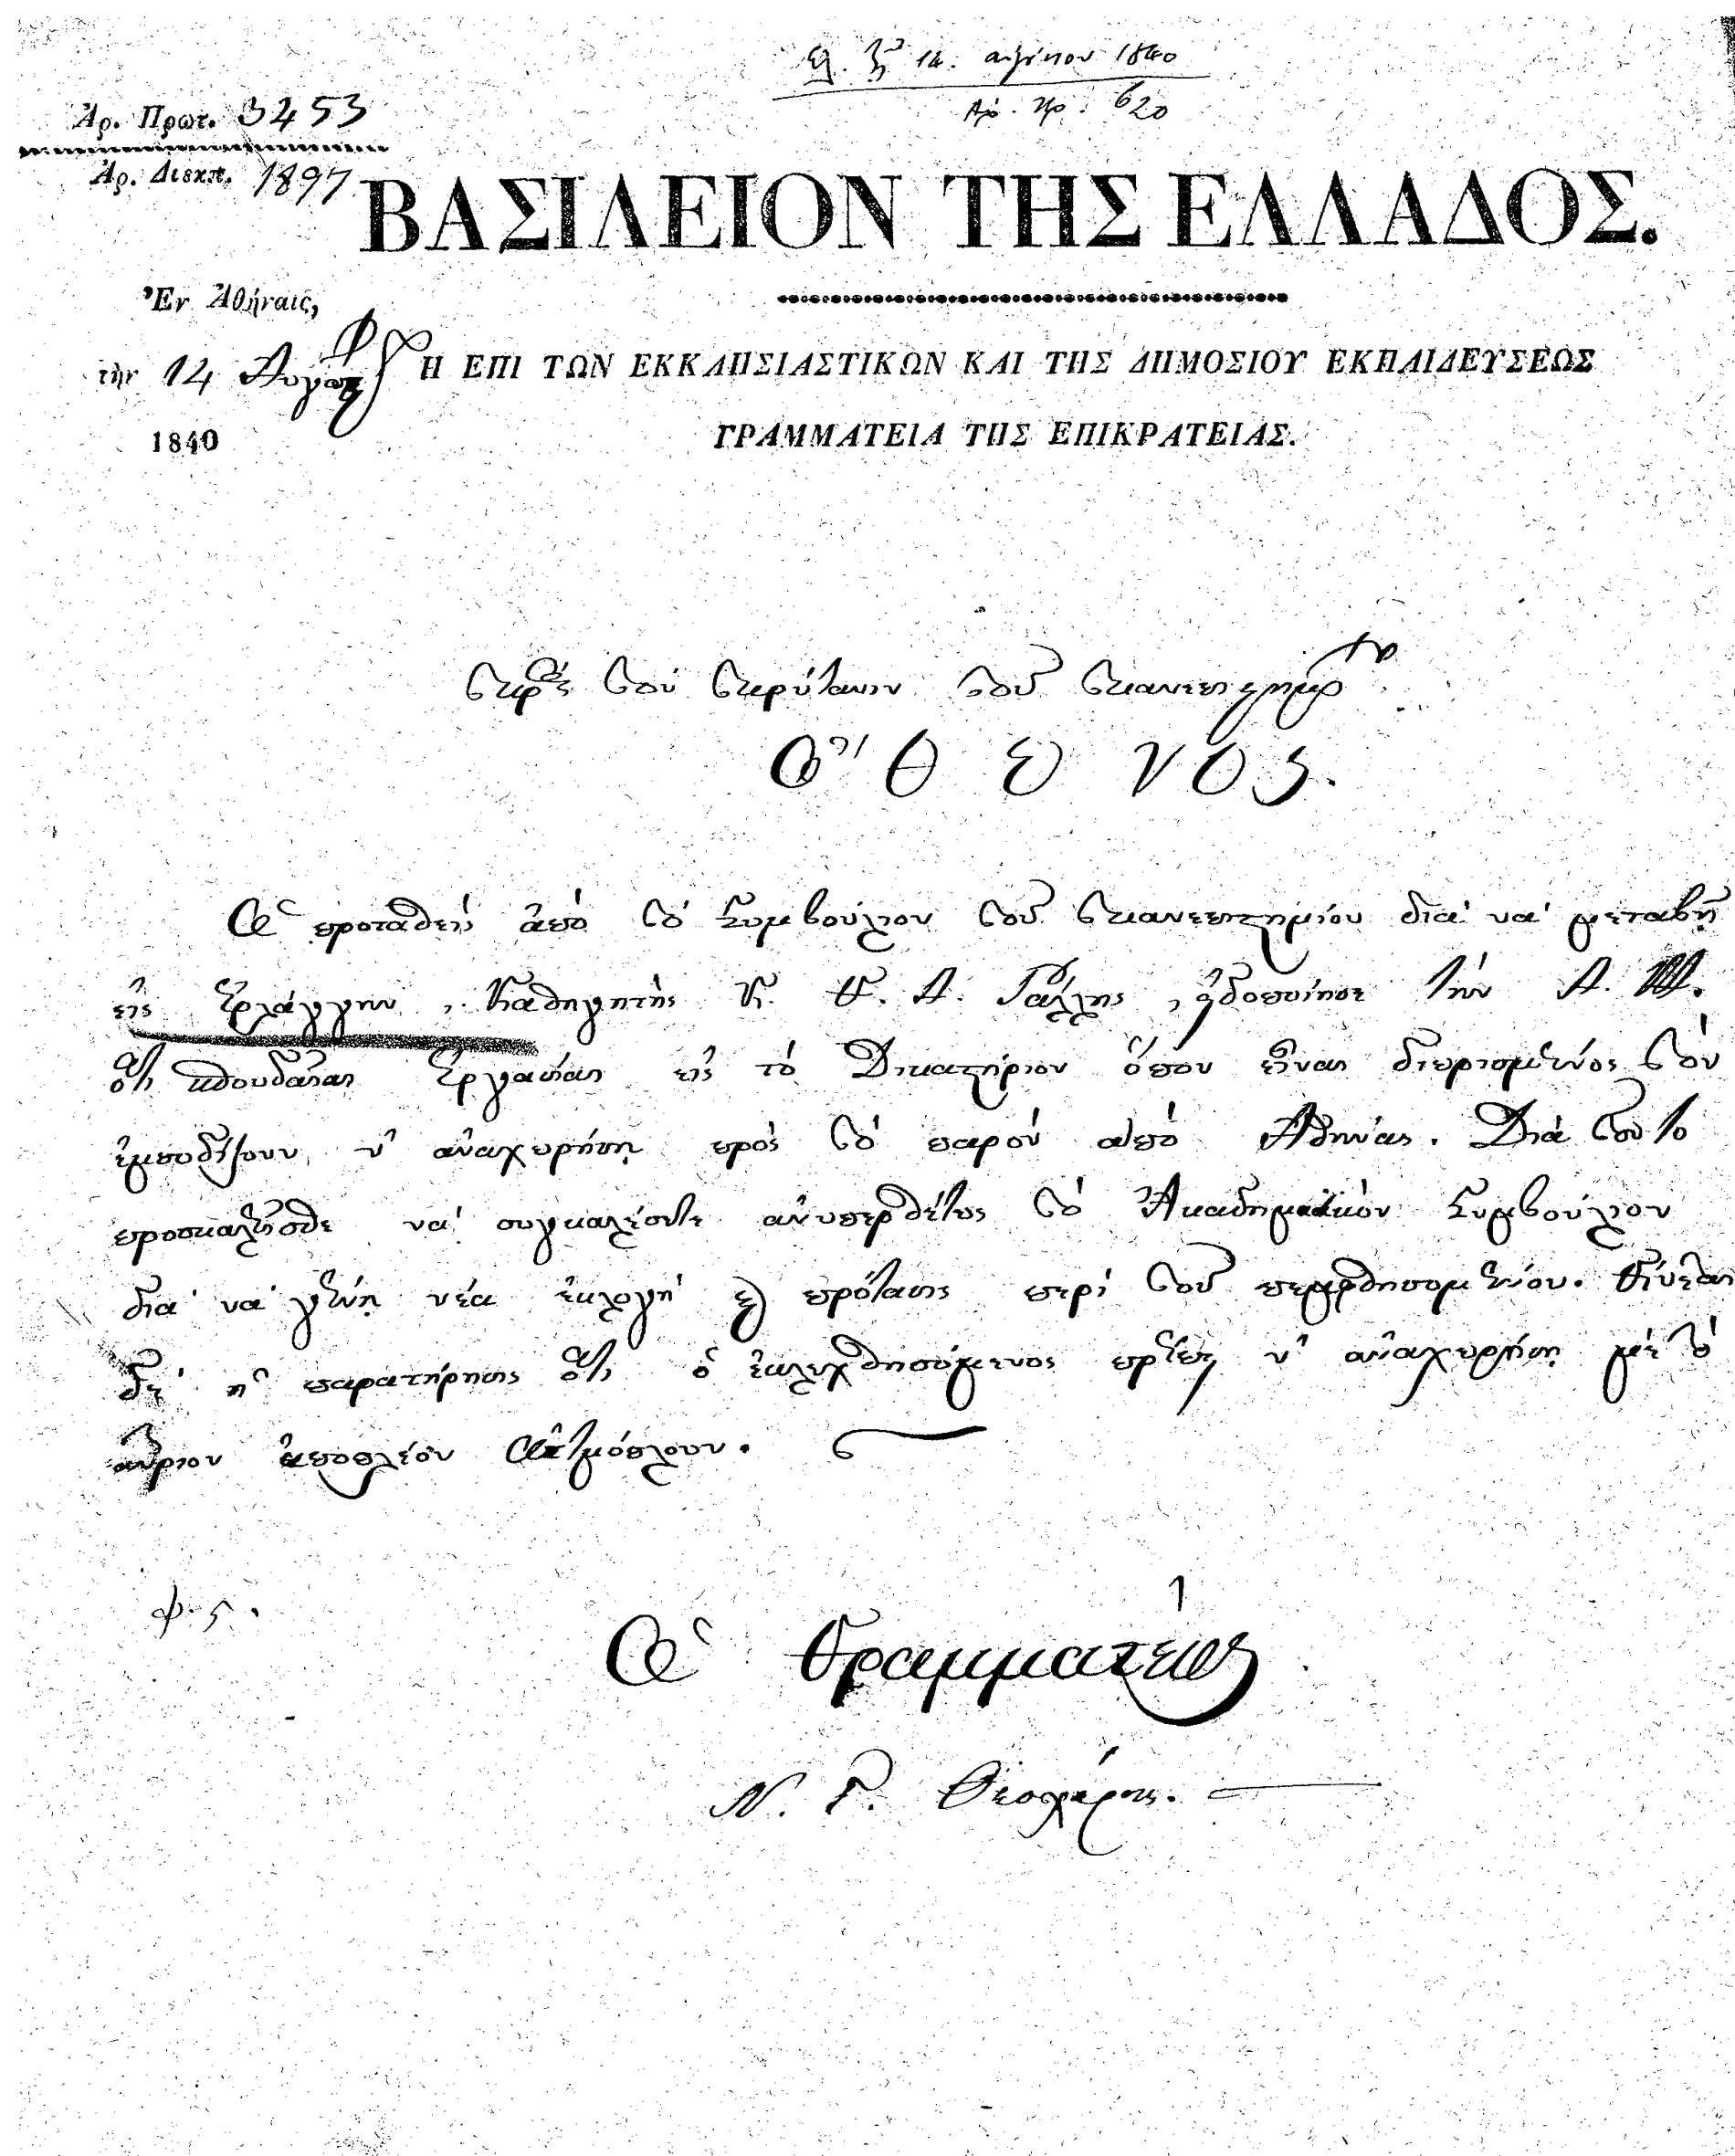 14. αὐγούστου 1840
Ἀρ. Πρ. 620
Ἀρ. Πρωτ. 3453
Ἀρ. Διεκπ. 1897
ΒΑΣΙΛΕΙΟΝ ΤΗΣ ΕΛΛΑΔΟΣ.
Ἐν Ἀθήναις,
τὴν 14 Αὐγούστου
1840
Η ΕΠΙ ΤΩΝ ΕΚΚΛΗΣΙΑΣΤΙΚΩΝ ΚΑΙ ΤΗΣ ΔΗΜΟΣΙΟΥ ΕΚΠΑΙΔΕΥΣΕΩΣ
ΓΡΑΜΜΑΤΕΙΑ ΤΗΣ ΕΠΙΚΡΑΤΕΙΑΣ.
Πρὸς τὸν Πρύτανιν τοῦ Πανεπιστημίου
Ὄθωνος.
Ὁ προταθεὶς ἀπὸ τὸ Συμβούλιον τοῦ Πανεπιστημίου διὰ νὰ μεταβῇ
εἰς Ἐρλάγγην, Καθηγητὴς Κ. Γ. Α. Ῥάλλης, εἰδοποίησε τὴν Α. Μ.
ὅτι σπουδαῖαι Ἐργασίαι εἰς τὸ Δικαστήριον ὅπου εἶναι διωρισμένος τὸν
ἐμποδίζουν ν' ἀναχωρήσῃ πρὸς τὸ παρὸν ἀπὸ Ἀθήνας. Διὰ τοῦτο
προσκαλεῖσθε νὰ συγκαλέσητε ἀνυπερθέτως τὸ Ἀκαδημαϊκὸν Συμβούλιον
διὰ νὰ γένῃ νέα ἐκλογὴ καὶ πρότασις περὶ τοῦ πεμφθησομένου. Γίνεται
δὲ ἡ παρατήρησις ὅτι ὁ ἐκλεχθησόμενος πρέπει ν' ἀναχωρήσῃ μὲ τὸ
αὔριον ἀποπλέον Ἀτμόπλουν.
Ὁ Γραμματεὺς
Ν. Γ. Θεοχάρης.